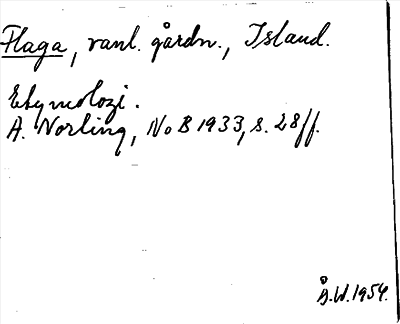 Flaga, vanl. gårdn., Island.
Etymologi.
A. Norling, NoB 1933, s. 28ff.
Å.W. 1954.